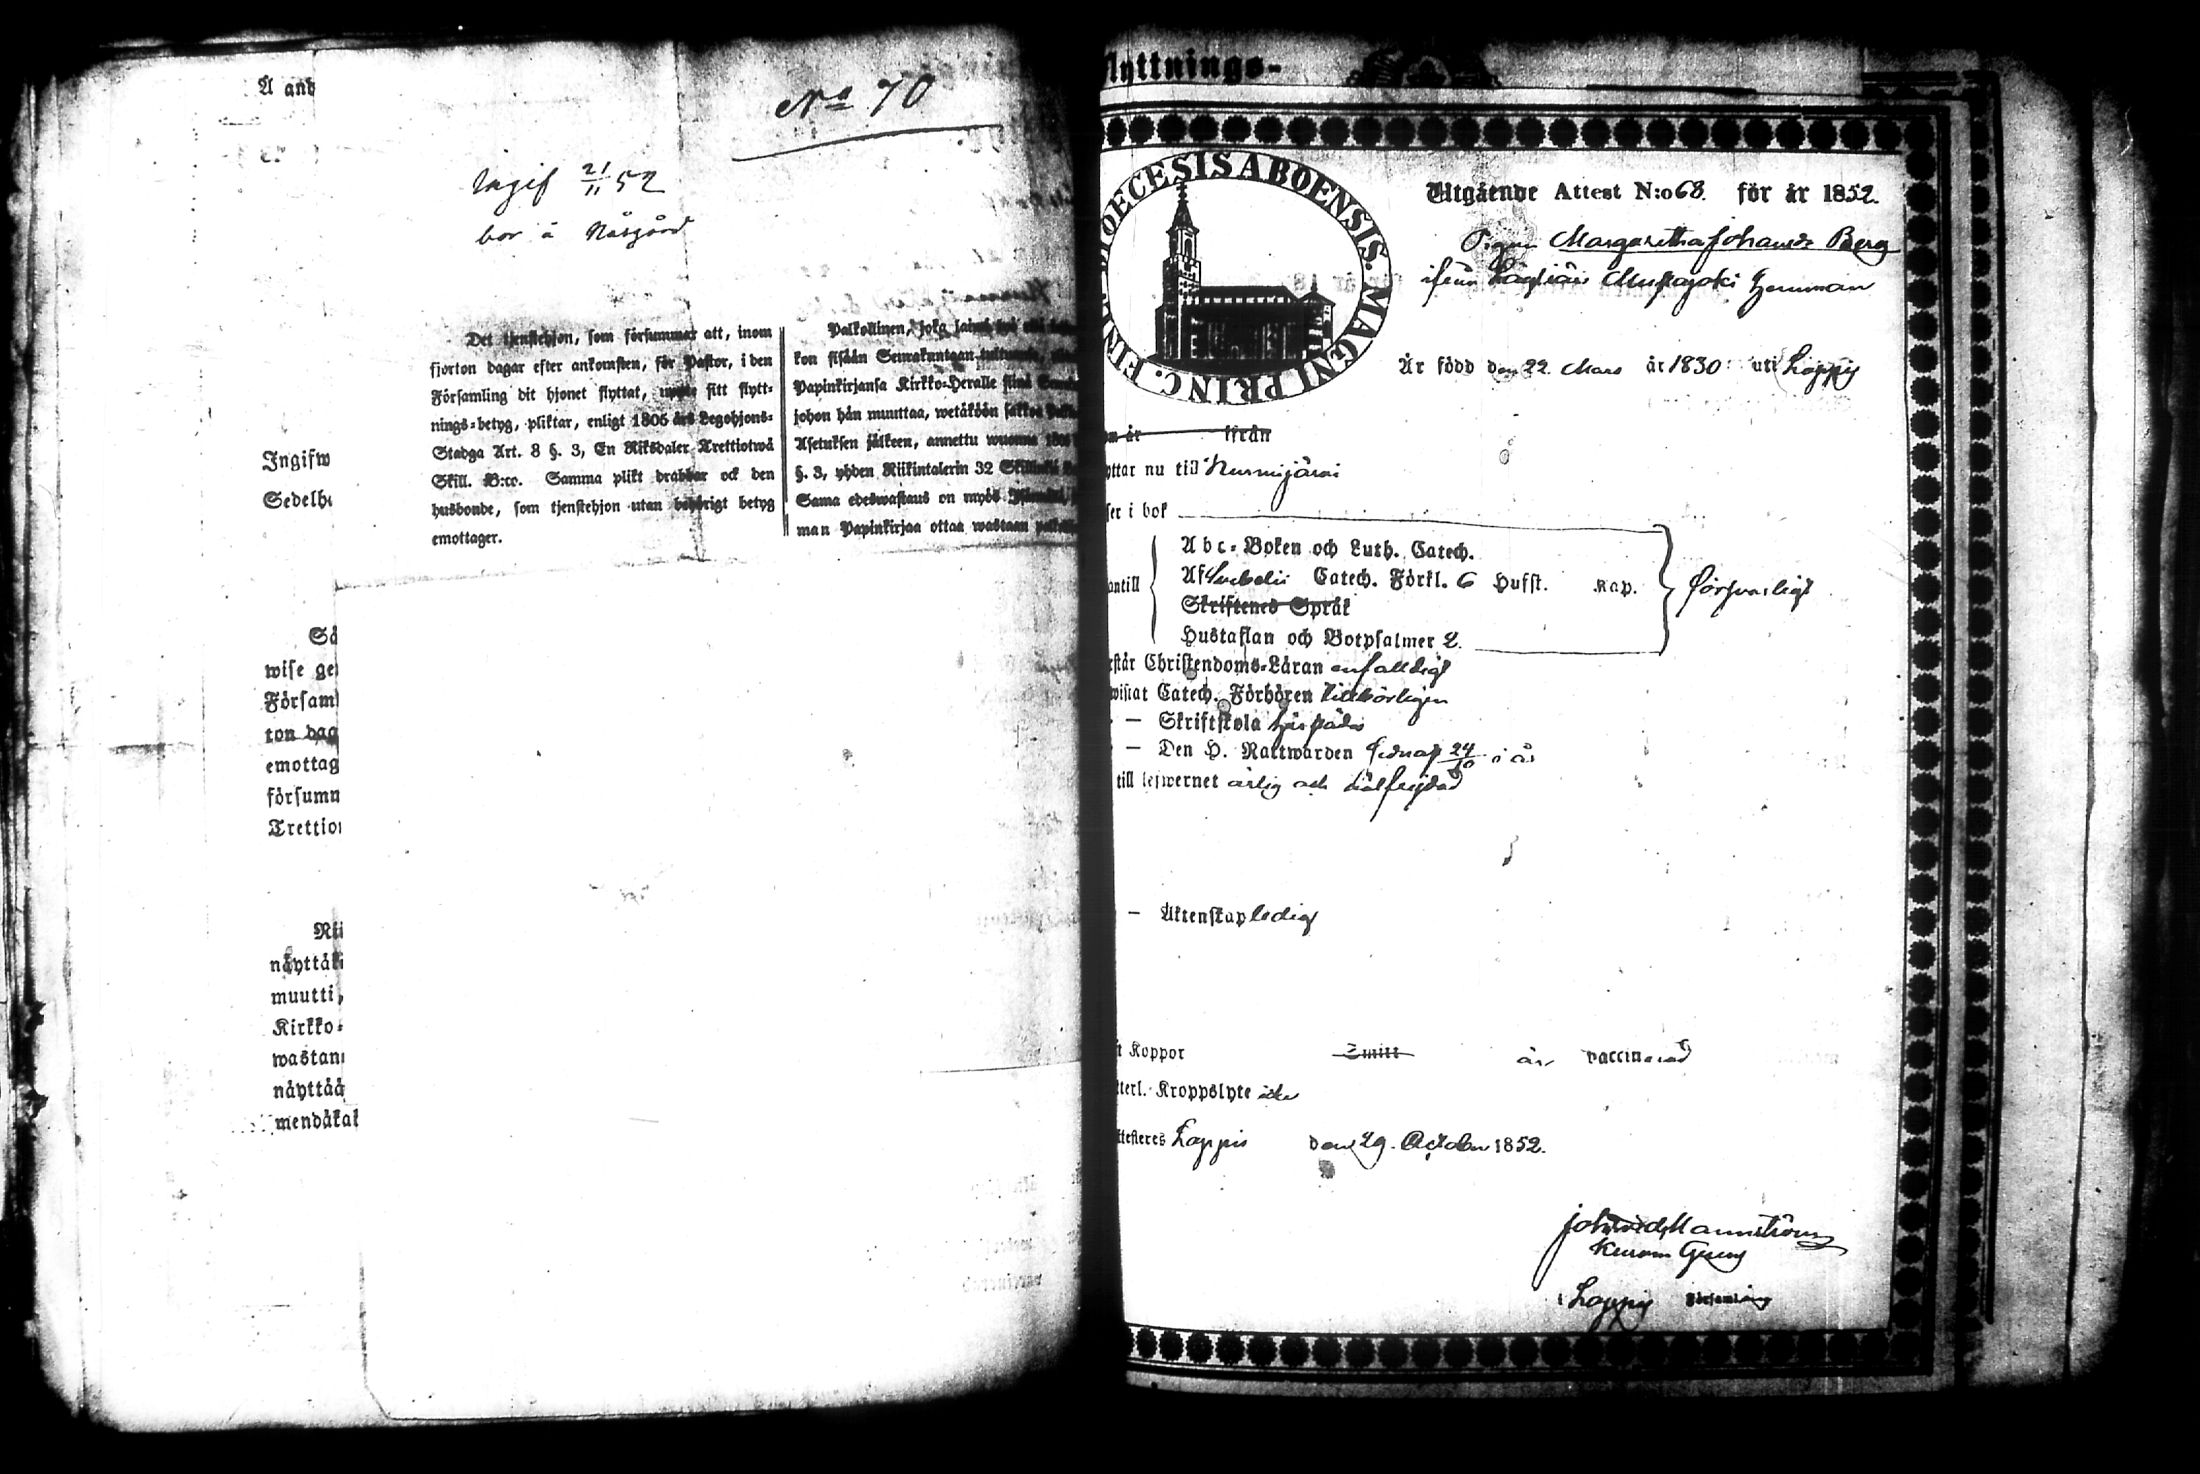 A and
No 70
Ingif 21/11 52
bor å Näsgård
Det tjenstehjon, som försummar att, inom
fjorton dagar efter ankomsten, för Pastor, i den
Församling dit hjonet flyttat, uppte sitt flytt-
nings-betyg, pliktar, enligt 1805 års Legohjons-
Stadga Art. 8 §. 3, En Riksdaler Trettiotwå
Skill. B:co. Samma plikt drabbar ock den
husbonde, som tjenstehjon utan behörigt betyg
emottager.
Palkollinen, joka
kon sisään Seurakuntaan
Papinkirjansa Kirkko-Heralle
johon hän muuttaa, wetäköön sakkoa
Asetuksen jälkeen, annettu wuonna
§. 3, yhden Riikintalerin 32 Skillinkiä
Sama edeswastaus on myös
man Papinkirjaa ottaa wastaan
Ingifw
Sedelh
Så
wise ge
Försam
ton dag
emottag
försumn
Trettio
Nii
näyttäk
muutti,
Kirkko-
wastan
näyttää
mendäkat
lyttnings-
DIOECESIS ABOENSIS. MAGNI PRINC. FINL.
Utgående Attest N:o 68. för år 1852.
Pigan Margaretha Johansdr Berg
ifrån Mustajoki hemman
Är född den 22 Mars år 1830 uti Loppis
om år ifrån
yttar nu till Nurmijärvi
ser i bok
antill
Abc-Boken och Luth. Catech.
Af Svebelii Catech. Förkl. 6 Hufst. Kap.
Skriftenes Språk
Hustaflan och Botpsalmer 2.
försvarligt
rstår Christendoms-Läran enfaldigt
wistat Catech. Förhören tillbörligen
— Skriftskola
— Den H. Nattwarden sednast 24/10 i år
till lefwernet ärlig och välfrejdad
— Äktenskap ledig
t Koppor Smitt är vaccinerad
tterl. Kroppslyte icke
ttesteres Loppis den 29. October 1852.
i Loppis Församling